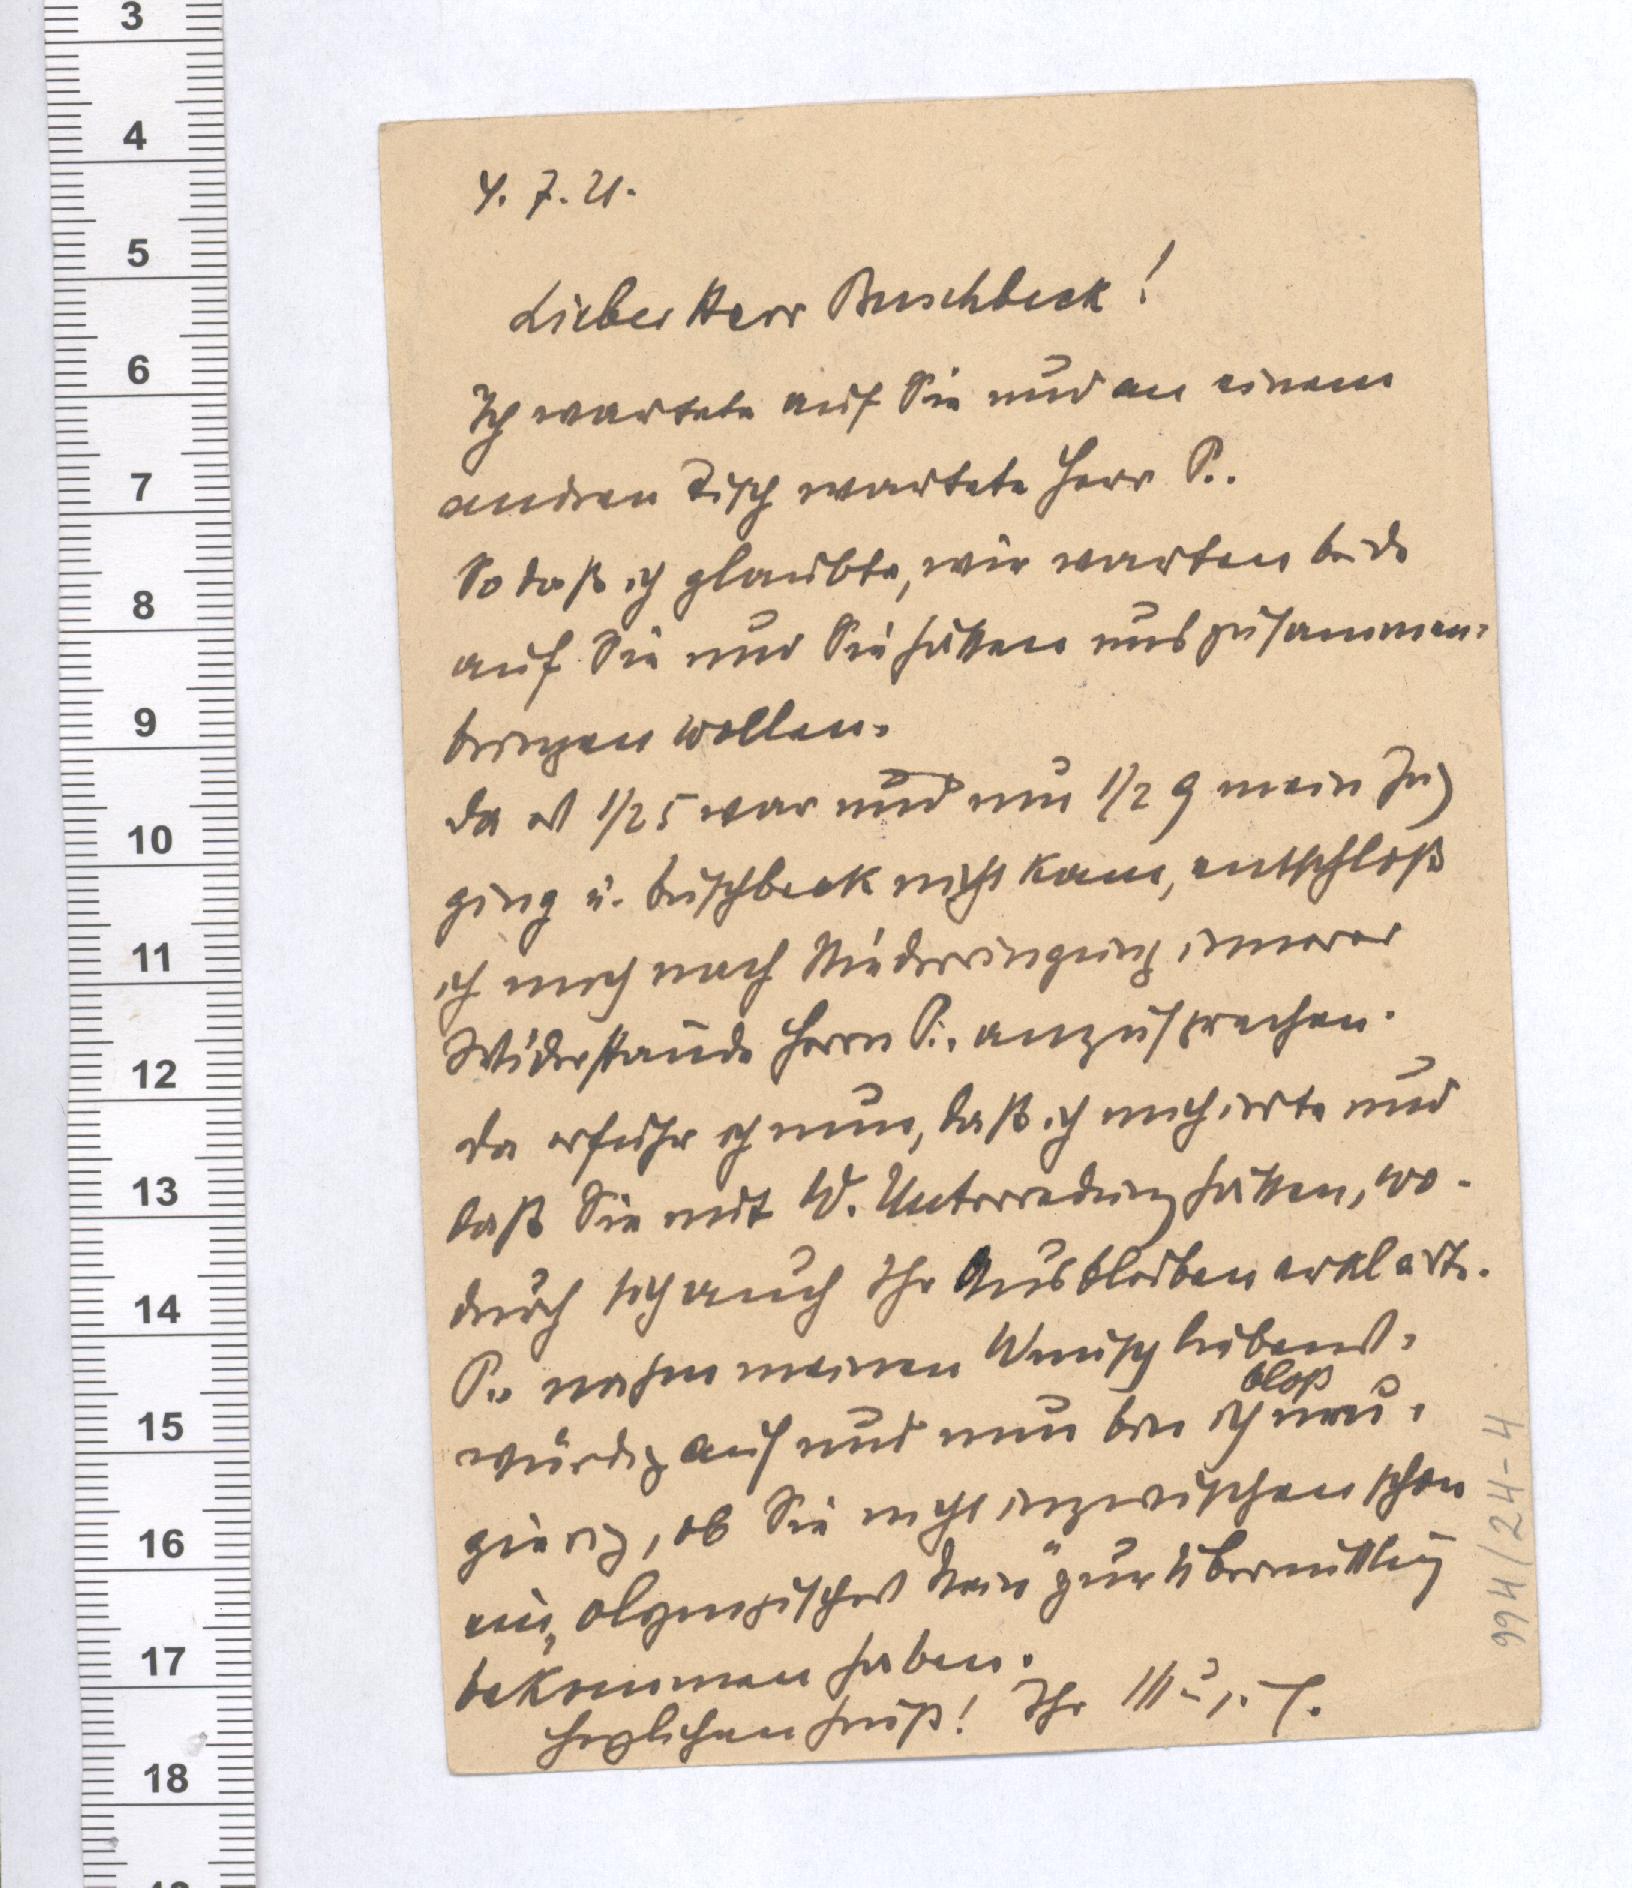 3
4
5
6
7
8
9
10
11
12
13
14
15
16
17
18
4. 7. 21.
Lieber Herr Buschbeck!
Ich wartete auf Sie und an einem
andren Tisch wartete Herr P..
So daß ich glaubte, wir warten beide
auf Sie und Sie hätten uns zusammen-
bringen wollen.
Da es 1/2 5 war und um 1/2 9 mein Zug
ging u. Buschbeck nicht kam, entschloß
ich mich nach Niederringung innerer
Widerstände Herrn P.. anzusprechen.
Da erfuhr ich nun, daß ich mich irrte und
daß Sie mit W. Unterredung hätten, wo-
durch sich auch Ihr Ausbleiben erklärte.
P.. nahm meinen Wunsch liebens-
würdig auf und nun bin ich bloß neu-
gierig, ob Sie nicht inzwischen schon
ein „olympisches Nein" zur Übermittlung
bekommen haben.
Herzlichen Gruß! Ihr
994/24-4